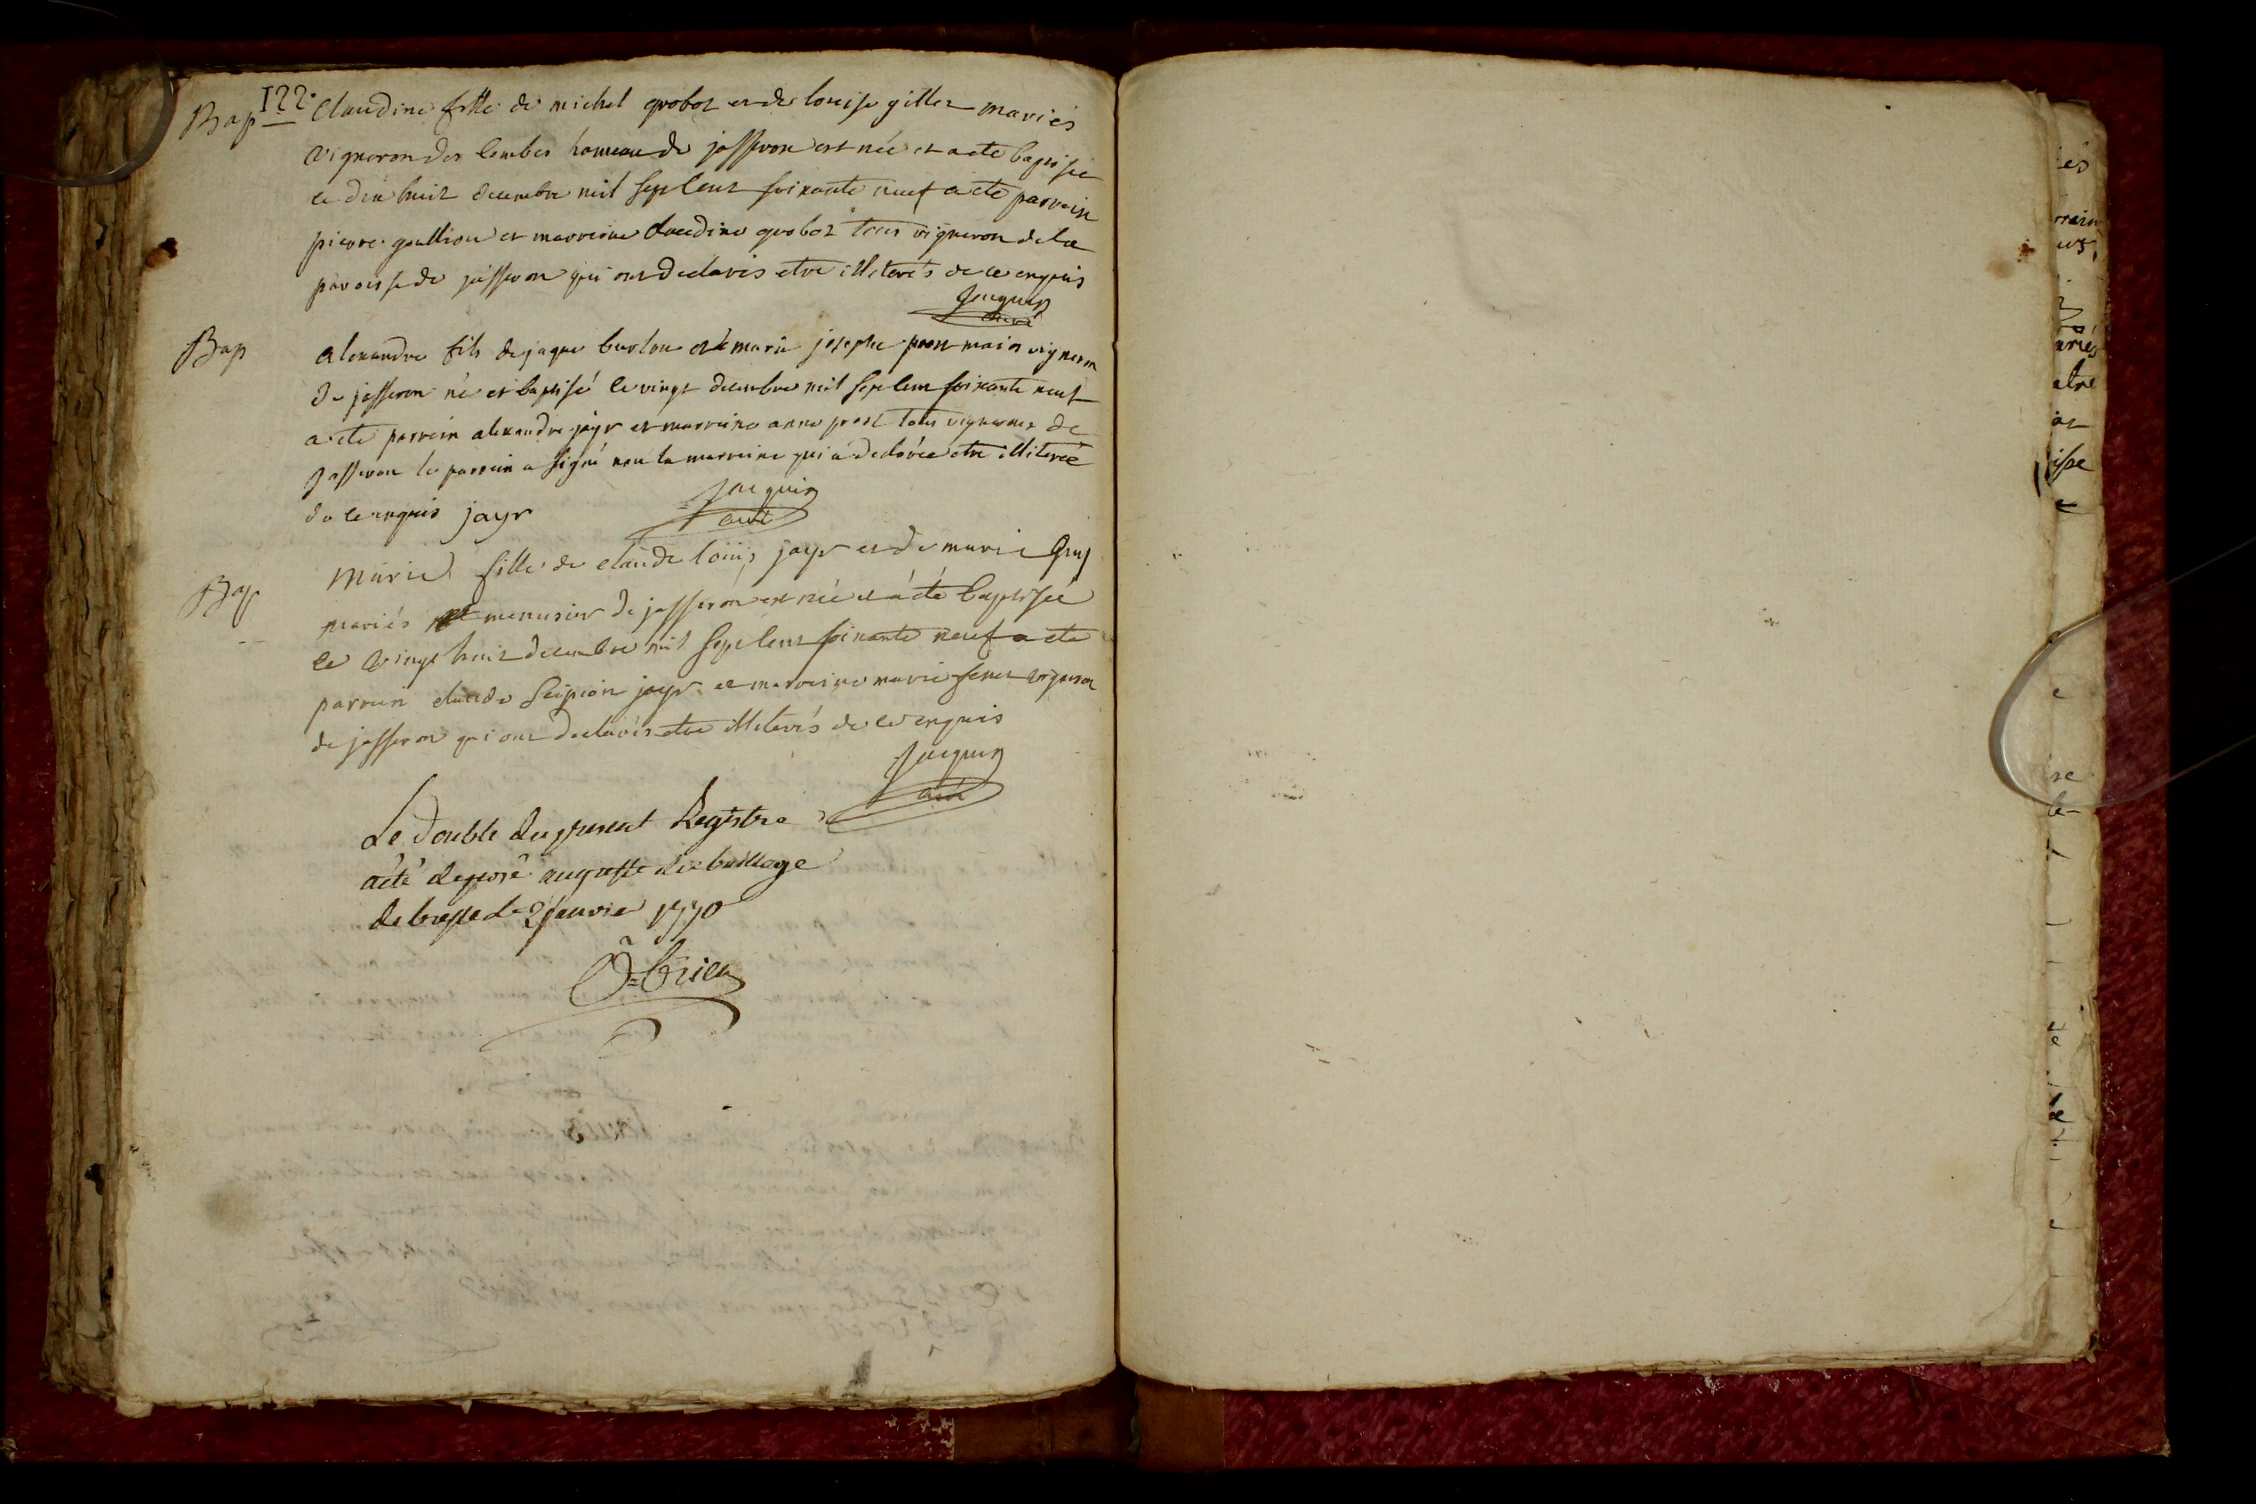 122.
Bap claudine fille de michel grobot et de louise gillet mariés
vigneron des combes hameau de jasseron est née et a ete baptisée
le dix huit decembre mil sept cent soixante neuf a ete parrain
pierre goullion et marreine claudine grobot tous vigneron de la
paroisse de jasseron qui ont declarés etre illiterés de ce enquis
Jacquin
curé
Bap alexandre fils de jaque burlon et de marie josephe prost mariés vigneron
de jasseron né et baptisé le vingt decembre mil sept cent soixante neuf
a ete parrein alexandre jayr et marreine anne prost tous vignerons de
Jasseron le parrein a signé non la marreine qui a declarée etre illiterée
de ce enquis jayr
Jacquin
curé
Bap marie fille de claude louis jayr et de marie
mariés menusier de jasseron est née et a été baptisée
le vingt huit decembre mil sept cent soixante neuf a ete
parrein claude scipion jayr et marreine marie vigneron
de jasseron qui ont declarés etre illiterés de ce enquis
Jacquin
curé
Le Double du present Registre
a été deposé au greffe du bailliage
de bresse le 2 janvier 1770